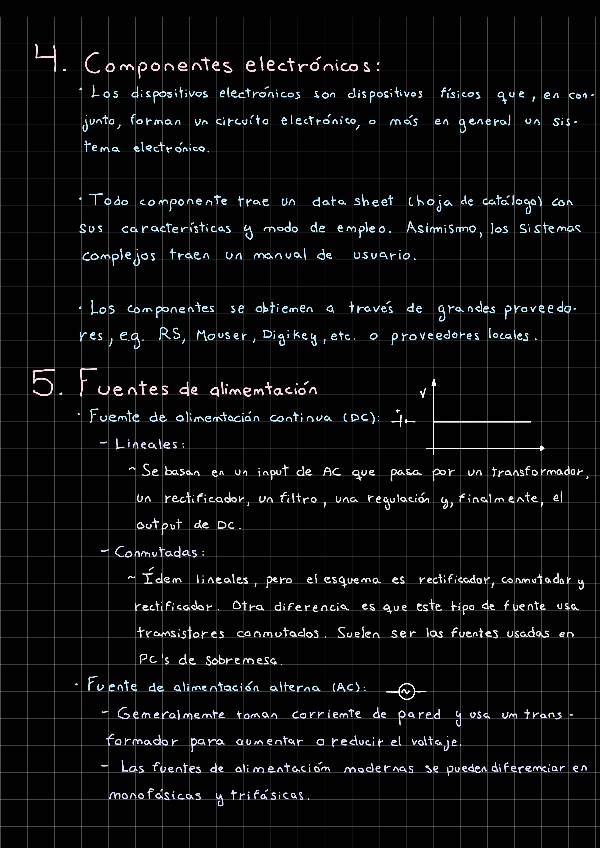 4. Componentes electrónicos:
· Los dispositivos electrónicos son dispositivos físicos que, en con-
junto, forman un circuito electrónico, o más en general un sis-
tema electrónico.
· Todo componente trae un data sheet (hoja de catálogo) con
sus características y modo de empleo. Asimismo, los sistemas
complejos traen un manual de usuario.
· Los componentes se obtienen a través de grandes proveedo-
res, e.g. RS, Mouser, Digikey, etc. o proveedores locales.
5. Fuentes de alimentación
· Fuente de alimentación continua (DC):
V
- Lineales:
~ Se basan en un input de AC que pasa por un transformador,
un rectificador, un filtro, una regulación y, finalmente, el
output de DC.
- Conmutadas:
~ Ídem lineales, pero el esquema es rectificador, conmutador y
rectificador. Otra diferencia es que este tipo de fuente usa
transistores conmutados. Suelen ser las fuentes usadas en
PC's de sobremesa.
· Fuente de alimentación alterna (AC):
- Generalmente toman corriente de pared y usa un trans-
formador para aumentar o reducir el voltaje.
- Las fuentes de alimentación modernas se pueden diferenciar en
monofásicas y trifásicas.